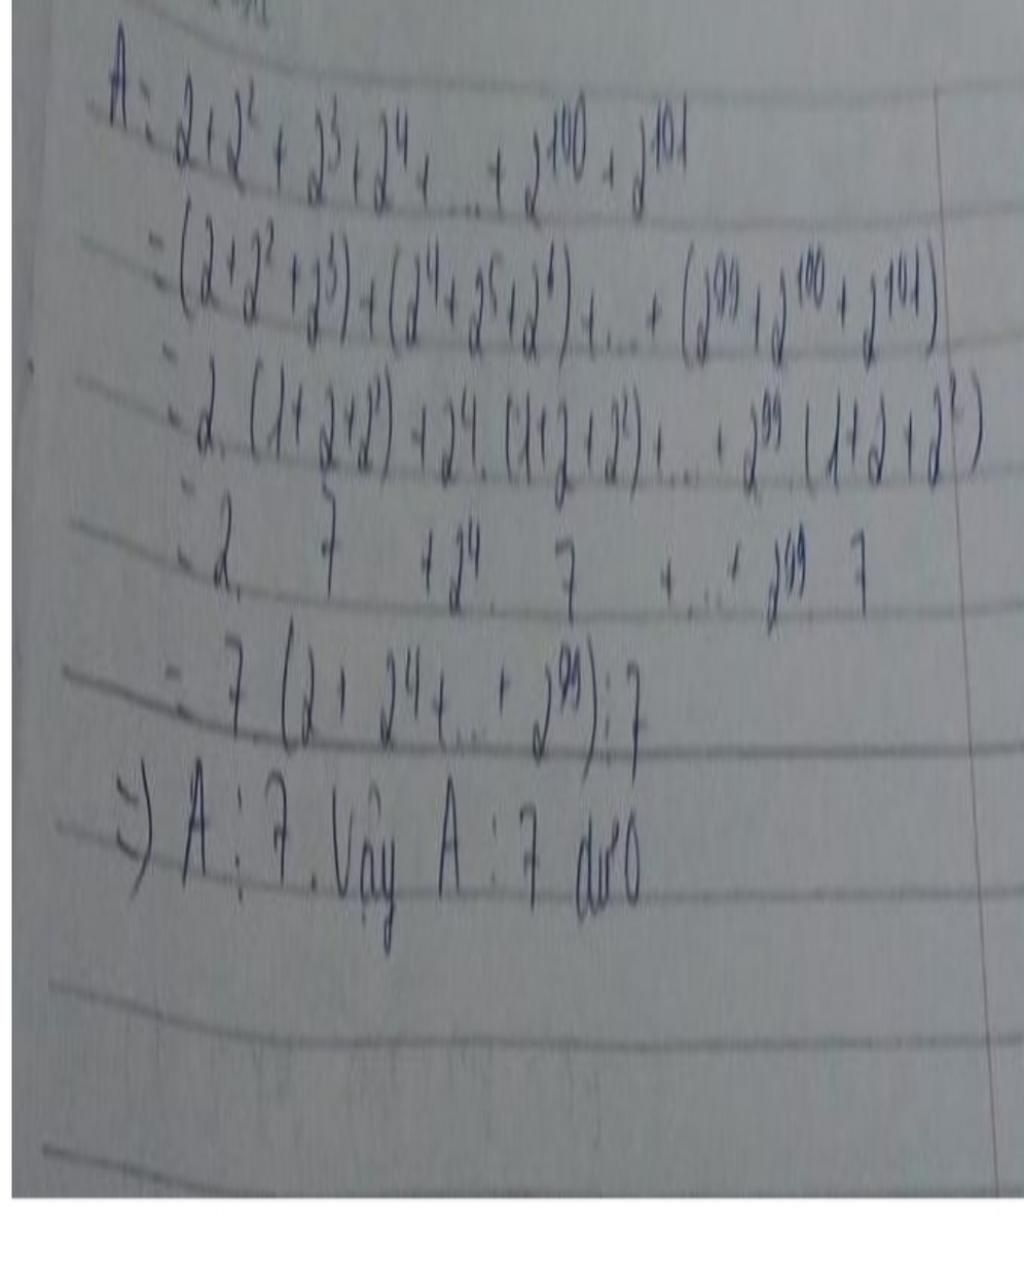 A = 2 + 2² + 2³ + 2⁴ + ... + 2¹⁰⁰ + 2¹⁰¹
= (2 + 2² + 2³) + (2⁴ + 2⁵ + 2⁶) + ... + (2⁹⁹ + 2¹⁰⁰ + 2¹⁰¹)
= 2 . (1 + 2 + 2²) + 2⁴ . (1 + 2 + 2²) + ... + 2⁹⁹ (1 + 2 + 2²)
= 2 . 7 + 2⁴ . 7 + ... + 2⁹⁹ 7
= 7 (2 + 2⁴ + ... + 2⁹⁹) ⋮ 7
=) A ⋮ 7 . Vậy A : 7 dư 0